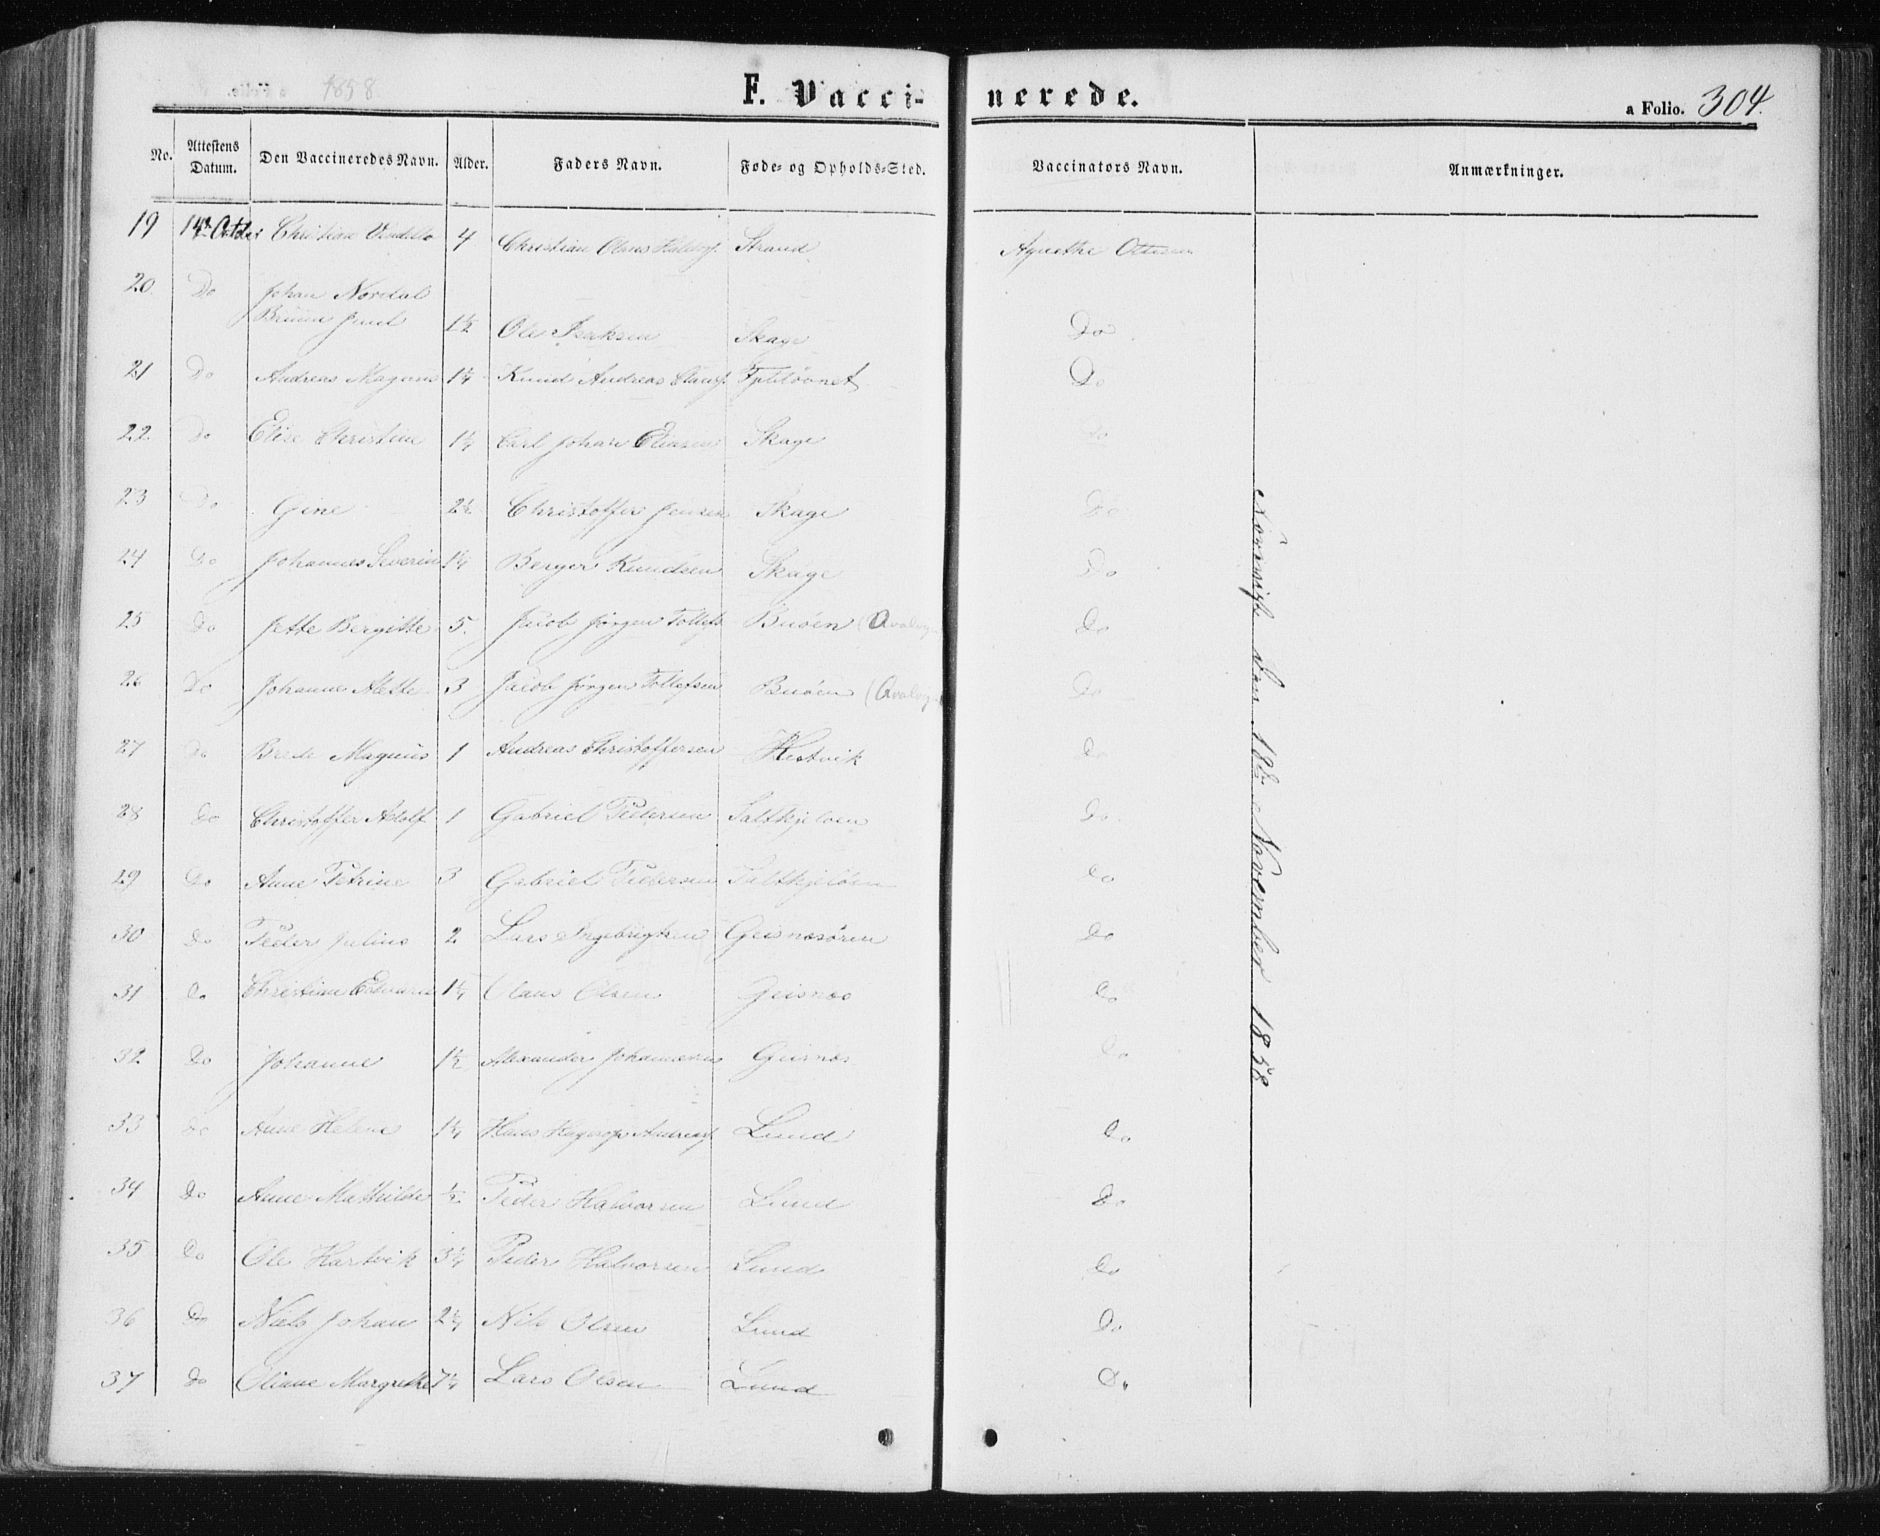 1858.
F. Vacci-
nerede.
a Folio. 304.
No. Attestens Datum. Den Vaccineredes Navn. Alder. Faders Navn. Føde- og Opholds-Sted. Vaccinators Navn. Anmærkninger.
19 14de Christian 4 Christian Strand Agnethe Ottesen
20. Do Johan Nordal
Bruun Juul 1½ Ole Isaksen Skage Do
21 Do Andreas Magnus 1¼ Knud Andreas Do
22. Do Elise Christine 1¼ Carl Johan Skage Do
23 Do Gine 2½ Christoffer Jensen Skage Do
24 Do Johannes Severin 1¼ Berger Knudsen Skage Do
25 Do Jette Bergitte 5. Jacob Jørgen Tollefs Buöen Do
26 Do Johanne Alette 3 Jacob Jørgen Tollefsen Buöen Do
27 Do Brede Magnus 1 Andreas Christoffersen Hestvik Do
28 Do Christoffer Adolf 1 Gabriel Pedersen Do
29 Do Anne Petrine 3 Gabriel Pedersen Do
30 Do Peder Julius 2 Lars Ingebrigtsen Do
31 Do Christian Edvard 1¼ Claus Olsen Geisnæs Do
32 Do Johanne 1½ Alexander Johannesen Geisnæs Do
33 Do Anne Helene 1¼ Hans Lund Do
34 Do Anne Mathilde ½ Peder Halvorsen Lund Do
35 Do Ole Hartvik 3¼ Peder Halvorsen Lund Do
36 Do Niels Johan 2¼ Nils Olsen Lund Do
37 Do Oliane Margrethe 7¼ Lars Olsen Lund Do
November 1858